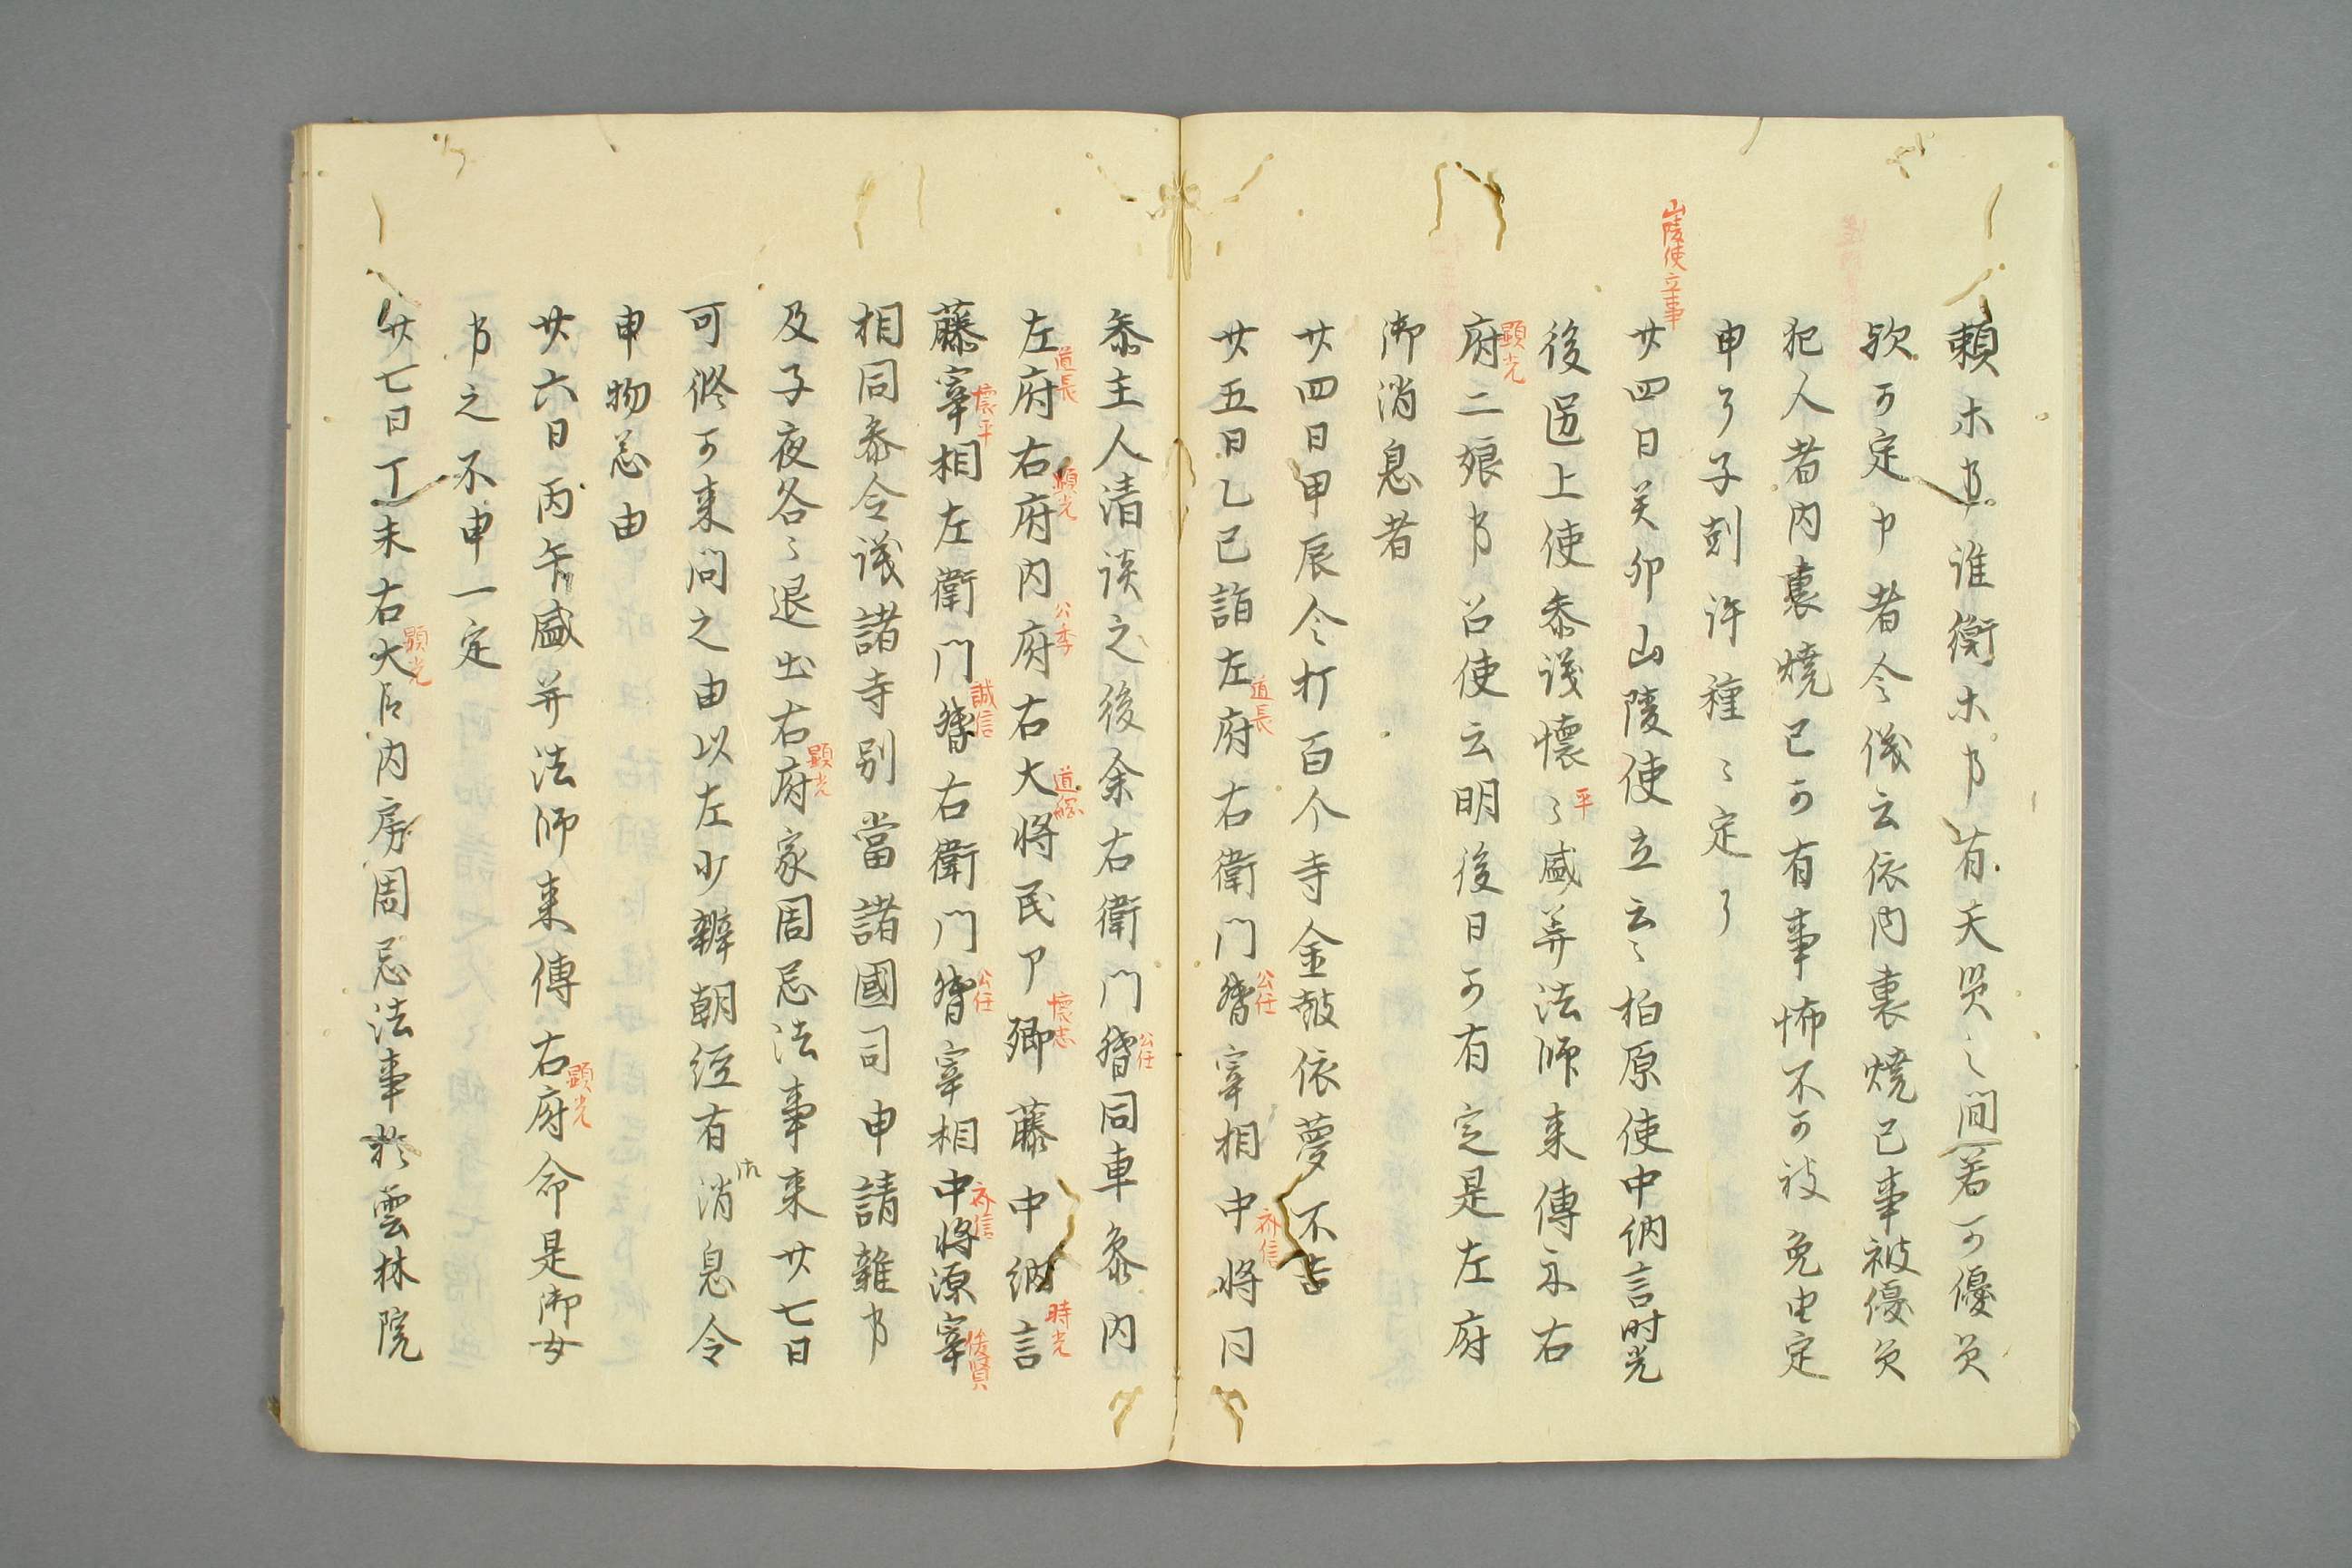 山陵使立事
頼木事誰衡木事有天哭之間若可優免
欤可定申者令儀云依内裏焼已事被優免
犯人者内裏焼已可有事怖不可被免由定
申了子剋許種〻定了
廿四日癸卯山陵使立云〻柏原使中納言时光
後邑上使参議懐〻盛算法师来傳示右
平
府二娘事召使云明後日可有定是左府
顕光
御消息者
廿四日甲辰令打百个寺金皷依夢不吉
廿五日乙巳詣左府右衛門督宰相中将同
道長
公任
参主人清談之後余右衛門督同車参内
公任
左府右府内府右大将民卩卿藤中納言
道長
顕光
公季
道綱
懐忠
時光
藤宰相左衛門督右衛門督宰相中将源宰
懐平
誠信
公任
斉信
俊賢
相同参令議諸寺别當諸國司申請雜事
及子夜各〻退出右府家周忌法事来廿七日
顕光
可修可来問之由以左少辨朝経有消息令
申物忌由
廿六日丙午盛算法师来傳右府命是御女
顕光
事之不申一定
廿七日丁未右大臣内房周忌法事於雲林院
顕光